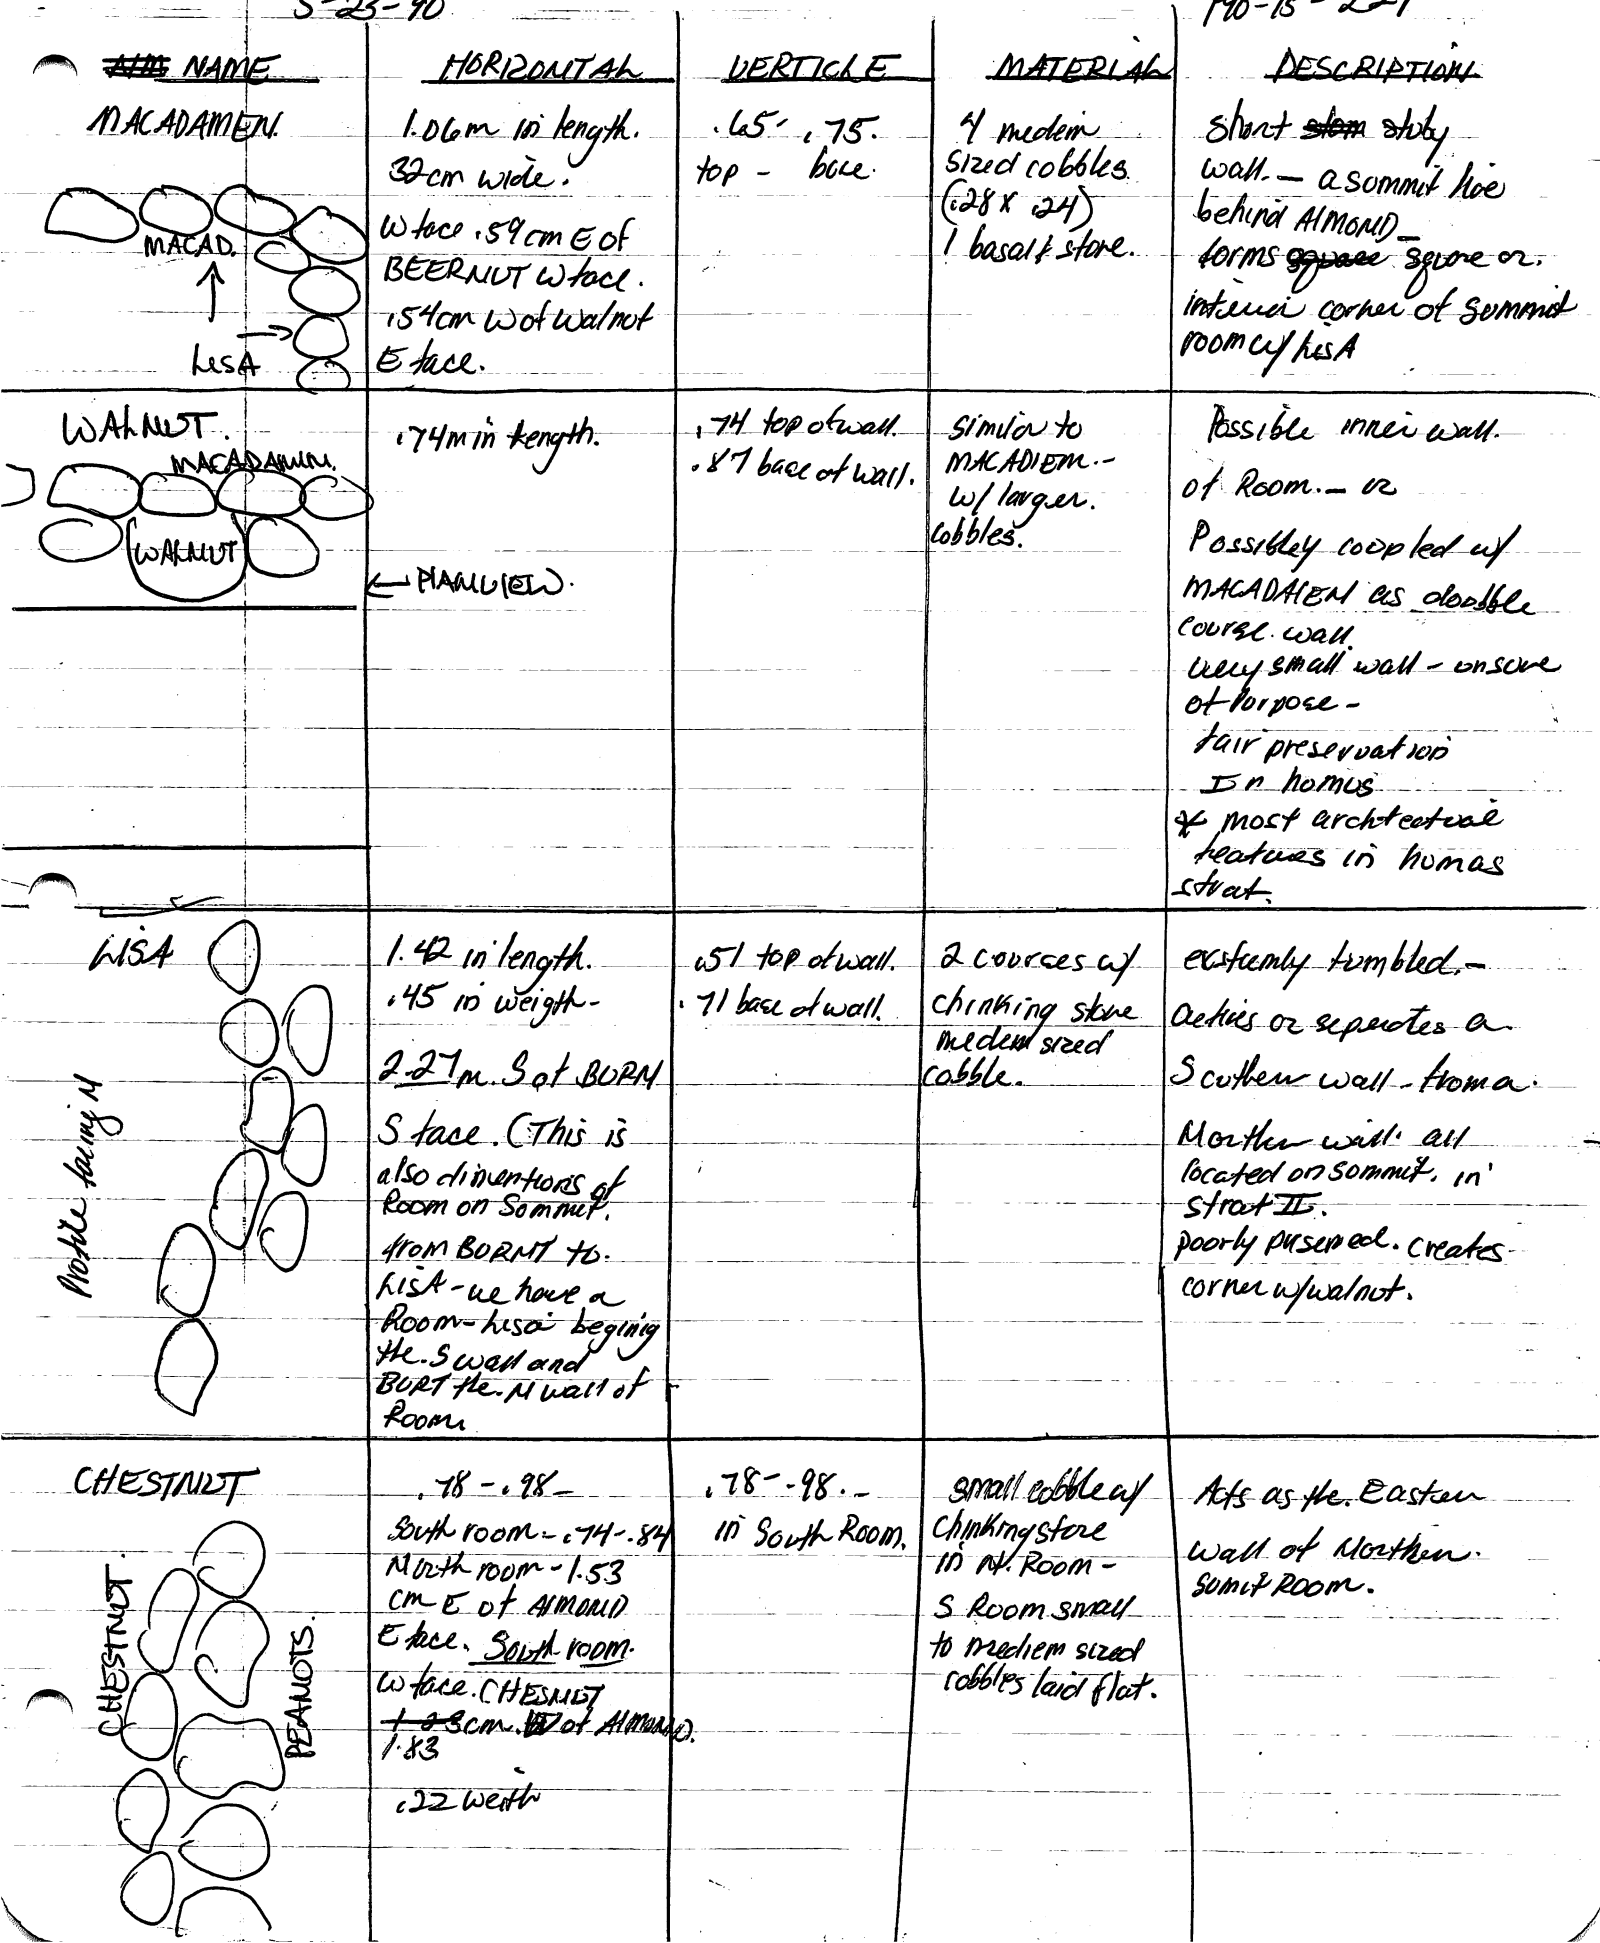 5-23-90
P90-15-221
NAME HORIZONTAL VERTICLE MATERIAL DESCRIPTION
MACADAMEN.
MACAD.
LISA
1.06m in length.
32cm wide.
W face .59cm E of
BEERNUT W face.
.54cm W of Walnut
E face.
.65 - .75.
top - base.
4 mediem
sized cobbles
(.28 x .24)
1 basalt stone.
Short stuby
wall. — a summit live
behind AlMOND —
forms square or
interior corner of summit
room w/ LisA
WALNUT.
MACADAMIN.
WALNUT
.74m in length.
← PLANVIEW.
.74 top of wall.
.87 base of wall.
similar to
MACADIEM. -
w/ larger.
cobbles.
Possible inner wall.
of Room. — or
Possibley coupled w/
MACADAIEN as doubble
course wall.
very small wall - unsure
of Purpose -
fair preservation
In homus
* most archtectual
features in homas
strat.
LISA
Profile facing N
1.42 in length.
.45 in weigth -
2.27m. S of BURN
S face. (This is
also dimentions of
Room on Sommit.
from BURNT to.
LisA - we have a
Room - Lisa begining
the S wall and
BURT the N wall of
Room.
.51 top of wall.
.71 base of wall.
2 courses w/
chinking stone
medem sized
cobble.
exstremly tumbled. -
defines or seperates a
Southern wall - from a
Northern wall. all
located on sommit. in
strat II.
poorly preserved. creates
corner w/ walnut.
CHESTNUT
CHESTNUT.
PEANUTS.
.78 - .98 -
South room - .74 - .84
North room - 1.53
cm E of AlMOND
E face. South room.
W face. CHESNUT
1.23cm. W of AlMOND.
1.83
.22 weith
.78 - .98. -
in South Room.
small cobble w/
chinking stone
in N. Room -
S Room small
to mediem sized
cobbles laid flat.
Acts as the Eastern
wall of Northern.
sumit Room.